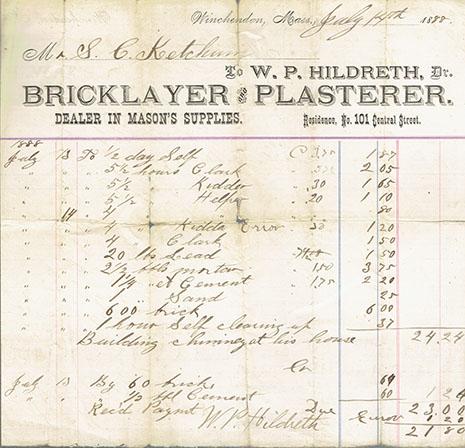 Winchendon, Mass., July 14th 1888
Mr S. C. Ketchum
To W. P. HILDRETH, Dr.
BRICKLAYER and PLASTERER.
DEALER IN MASON'S SUPPLIES. Residence, No. 101 Central Street.
1888
July 13 To ½ day Self 1 87
" " " 5½ hours Clark 2 05
" " " 5½ " Kidder .30 1 65
" " " 5½ " Helper .20 1 10
" 14 " 4 80
" " " 4 " Kidder Error 30 1 20
" " " 4 " Clark 1 50
" " " 20 lbs Lead 1 50
" " " 2½ mortar 1.50 3 75
" " " 1¼ " Cement 1.75 2 20
" " " 1 " Sand 25
" " " 600 brick 6 00
" " " 1 hour Self clearing up 37
Building chimney at his house 24.24
Cr
July 13 By 60 bricks 64
" " " Cement 60 1 24
Recd Paymt Due 23.00
W. P. Hildreth Error 1 20
21 80